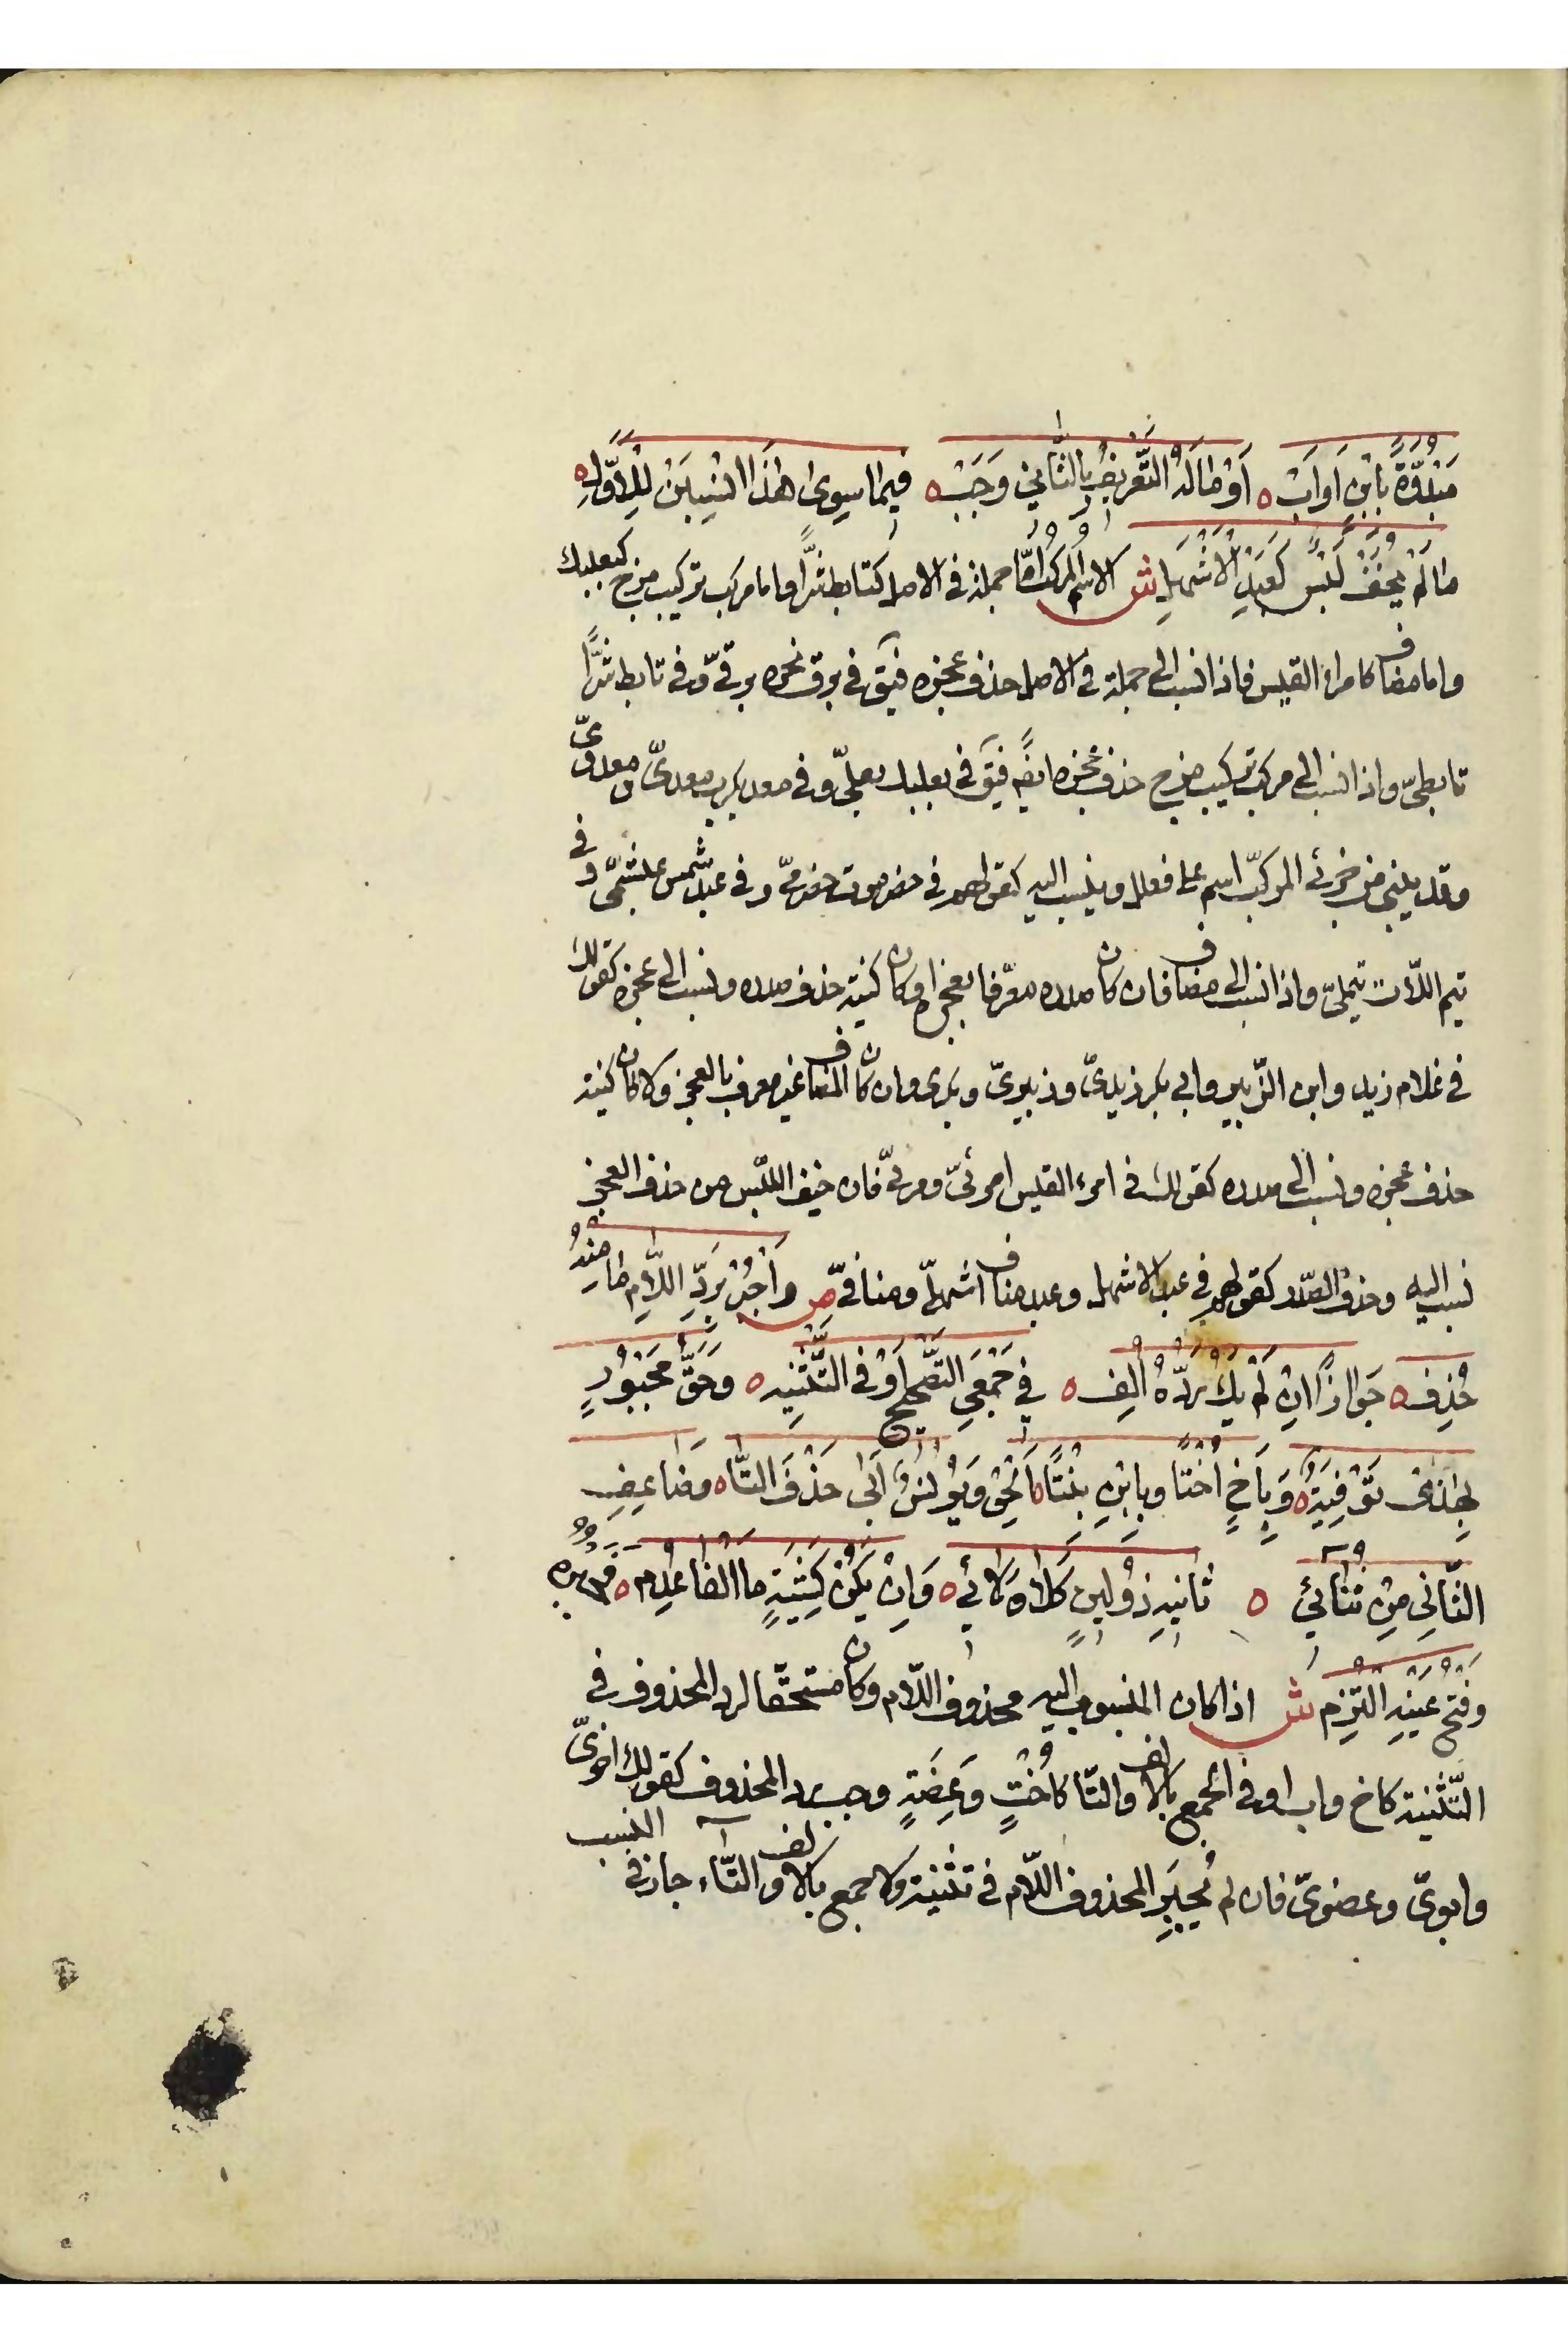 مَبْدُوَّةً بِابْنٍ اَوِ اَبْ ه اَوْ مٰا لَهُ التَّعْرِيفُ بِالثّٰانِي وَجَبْ ه فيمٰا سِوىٰ هٰذَا انْسِبَنْ لِلْاَوَّلِ ه
مٰا لَمْ يُخَفْ لَبْسٌ كَعَبْدِ الْاَشْهَلِ ش الاسم المركب امّا جملة في الاصل كتابط شرًّا واما مركب تركيب مزج كبعلبك
واما مضاف كامرئ القيس فاذا نسب الى جملة في الاصل حذف عجزه فيق في برق نحره برقيّ وفي تابط شرًّا
تابطيّ واذا نسب الى مركب تركيب مزج حذف عجزه ايضً فيق في بعلبك بعليّ وفي معد يكرب معديّ ومعدويّ
وقد يبنى من جزئي المركّب اسم على فعلل وينسب اليه كقولهم في حضرموت حضرميّ وفي عبد شمس عبشميّ وفي
تيم اللّات تيمليّ واذا نسب الى مضاف فان كان صدره معرّفا بعجزه او كان كنية حذف صدره ونسب الى عجزه كقولك
في غلام زيد وابن الزّبير وابي بكر زيديّ وزبيريّ وبكري وان كان المضاف غير معرف بالعجز ولا كان كنية
حذف عجزه ونسب الى صدره كقولك في امرء القيس امرئيّ ومرئيّ فان خيف اللّبس من حذف العجز
نسب اليه وحذف الصّدر كقولهم في عبد الاشهل وعبد مناف اشهليّ ومنافيّ ص وَاجْبُرْ بِرَدِّ اللّٰامِ مٰا مِنْهُ
حُذِفْ ه جَوٰازًا اِنْ لَمْ يَكُ رَدُّهُ اُلِفْ ه في جَمْعَيِ التَّصْحِيحِ اَوْ فِي التَّثْنِيَه ه وَحَقُّ مَجْبُورٍ
بِهٰذِي تَوْفِيَه ه وَبِاَخٍ اُخْتًا وَبِابْنٍ بِنْتًا ه اَلْحِقْ وَيُونُسُ اَبٰى حَذْفَ التّٰا ه وَضٰاعِفِ
الثّٰانِيَ مِنْ ثُنٰائِي ه ثٰانِيهِ ذُو لِينٍ كَلٰا وَلٰائِي ه وَاِنْ يَكُنْ كَشِيَةٍ مٰا الْفٰا عَدِمْ ه فَجَبْرُهُ
وَفَتْحُ عَيْنِهِ الْتُزِمْ ش اذا كان المنسوب اليه محذوف اللّام وكان مستحقّا لرد المحذوف في
التّثنية كاخ واب او في الجمع بالالف والتّا كاُخْتٍ وَعِضَةٍ وجب رد المحذوف كقولك اخويّ
وابويّ وعضويّ فان لم يُجبَرِ المحذوف اللّام في تثنية ولا جمع بالالف والتّاء جاز في النسب